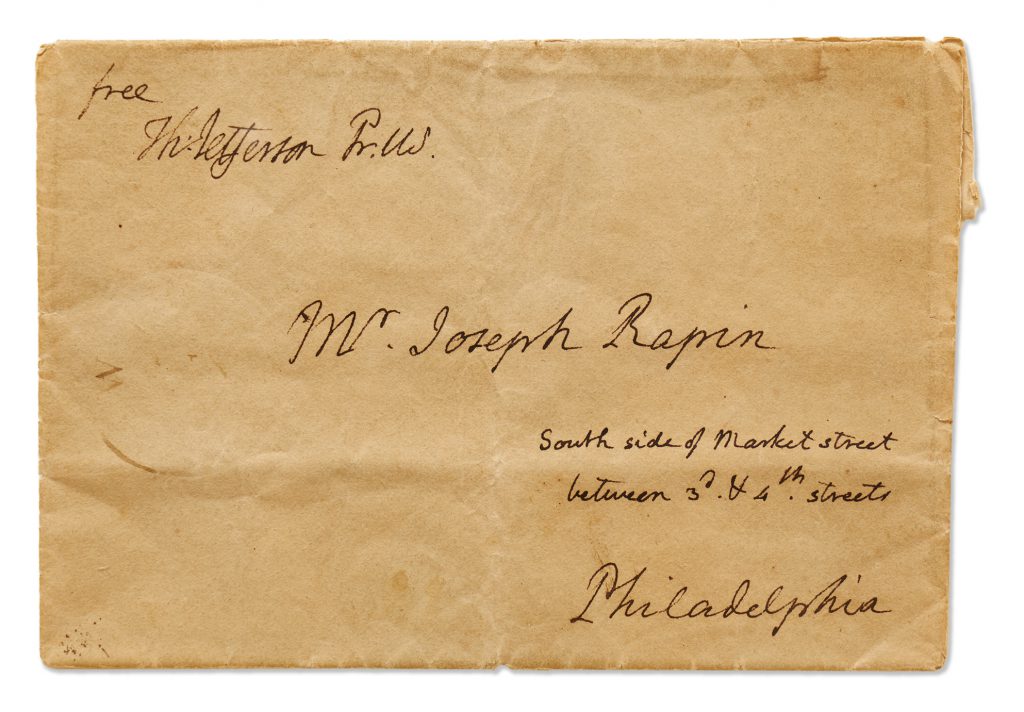 free
Th: Jefferson Pr. US.
Mr. Joseph Rapin
South side of Market street
between 3d. & 4th. streets
Philadelphia